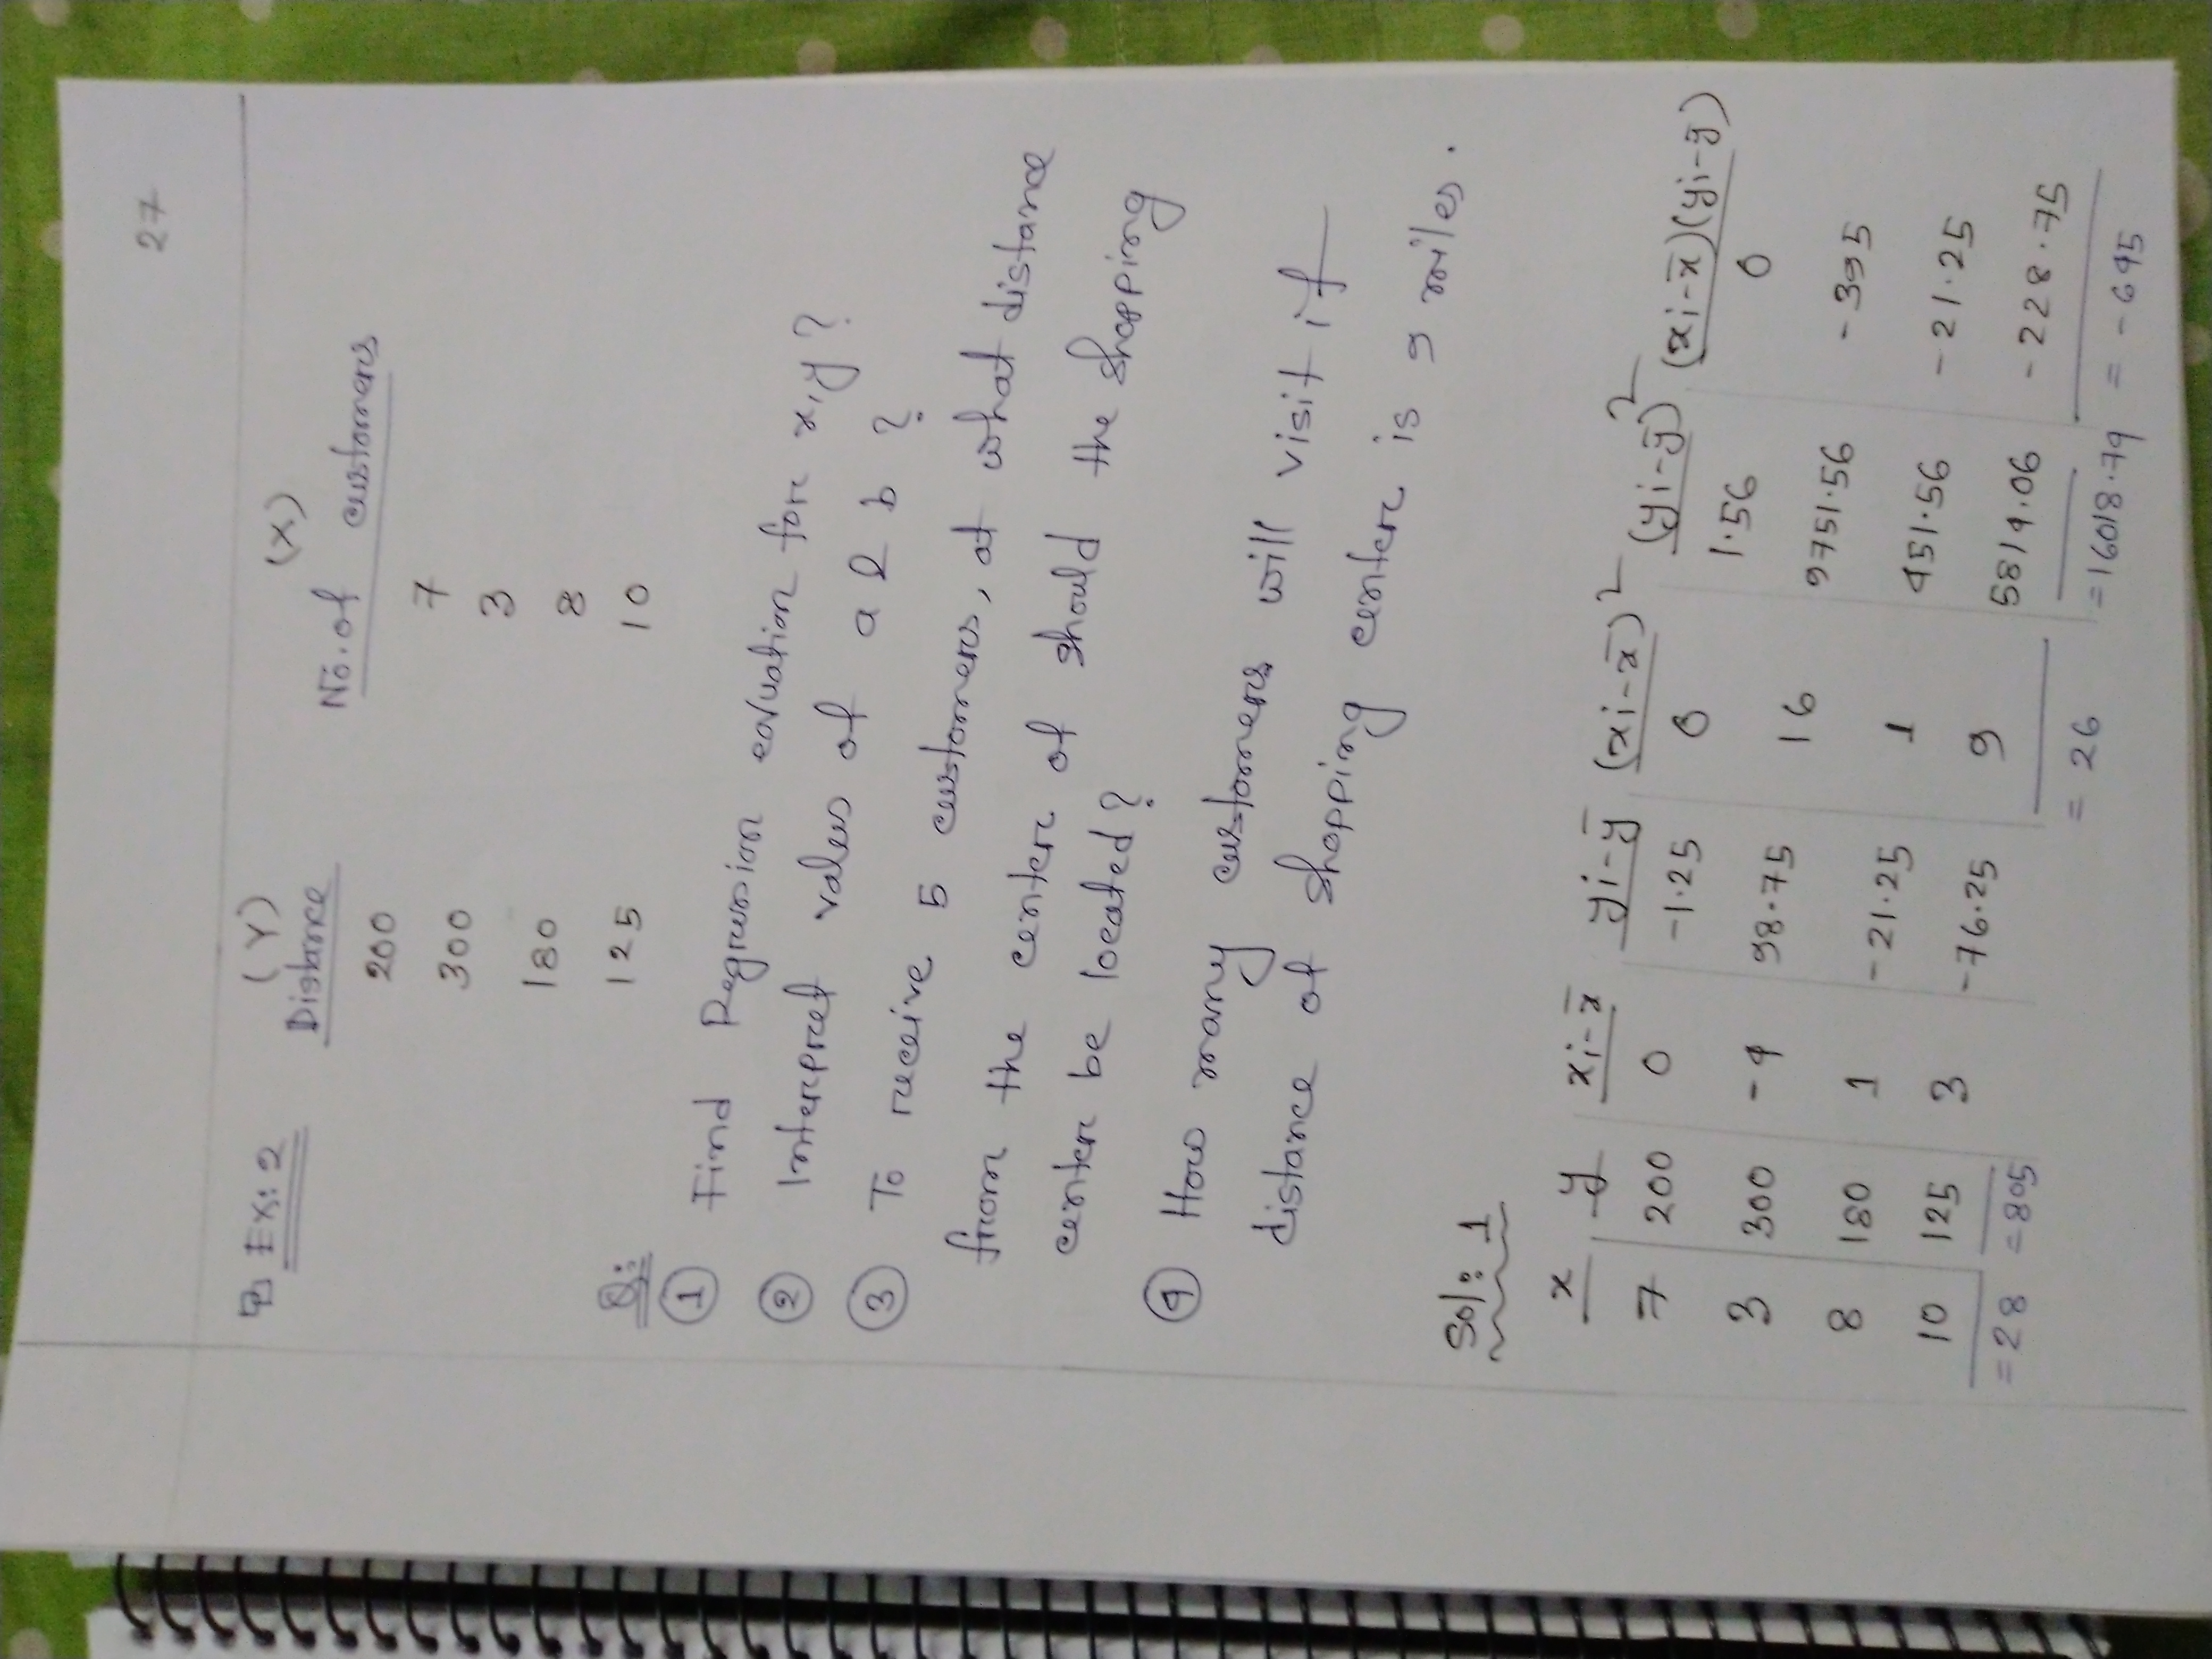 27
Ex: 2 (Y) (X)
Distance No. of customers
200 7
300 3
180 8
125 10
Q:
① Find Regression equation for x,y?
② Interpret values of a & b?
③ To receive 5 customers, at what distance
from the center of should the shopping
center be located?
④ How many customers will visit if
distance of shopping center is 9 miles.
Sol: 1
x y xi-x̄ yi-ȳ (xi-x̄)² (yi-ȳ)² (xi-x̄)(yi-ȳ)
7 200 0 -1.25 0 1.56 0
3 300 -4 98.75 16 9751.56 -395
8 180 1 -21.25 1 451.56 -21.25
10 125 3 -76.25 9 5814.06 -228.75
=28 =805 =26 =16018.74 =-645